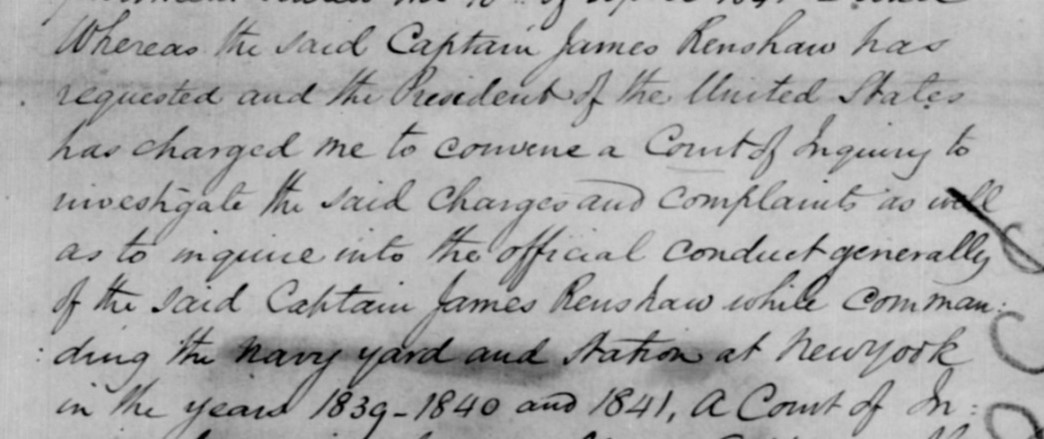 Whereas the said Captain James Renshaw has
requested and the President of the United States
has charged me to convene a Court of Inquiry to
investigate the said Charges and complaints as well
as to inquire into the official conduct generally
of the said Captain James Renshaw while comman:
:ding the Navy yard and Station at New York
in the years 1839-1840 and 1841, A Court of In: